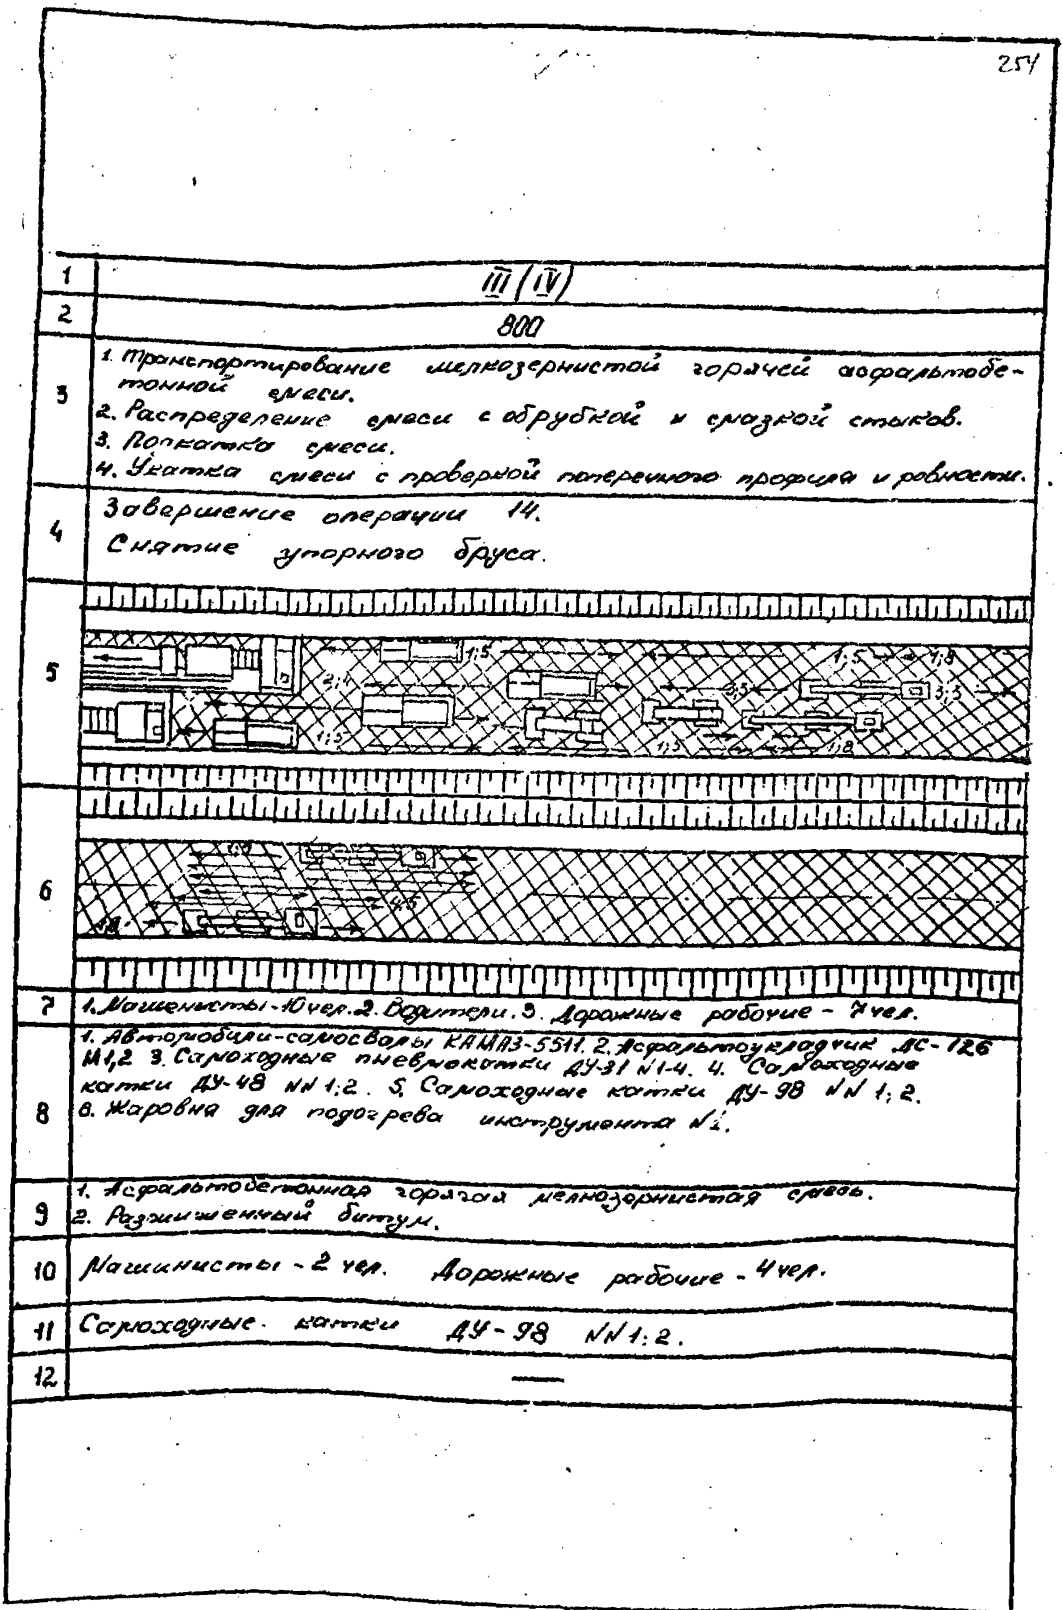 254
1 III (IV)
2 800
3 1. Транспортирование мелкозернистой горячей асфальтобе-
тонной смеси.
2. Распределение смеси с обрубкой и смазкой стыков.
3. Подкатка смеси.
4. Укатка смеси с проверкой поперечного профиля и ровности.
4 Завершение операции 14.
Снятие упорного бруса.
5
1;5 1;5 1;8
2;4 3;3 3;3
1;5 1;5 1;8
6
4;5
7 1. Машенисты-10 чел. 2. Водители. 3. Дорожные рабочие - 7 чел.
8 1. Автомобили-самосвалы КАМАЗ-5511. 2. Асфальтоукладчик ДС-126
№1,2 3. Самоходные пневмокатки ДУ-31 №1-4. 4. Самоходные
катки ДУ-48 NN 1;2. 5. Самоходные катки ДУ-98 NN 1;2.
6. Жаровня для подогрева инструмента №1.
9 1. Асфальтобетонная горячая мелкозернистая смесь.
2. Разжиженный битум.
10 Машинисты - 2 чел. Дорожные рабочие - 4 чел.
11 Самоходные катки ДУ-98 NN 1;2.
12 —